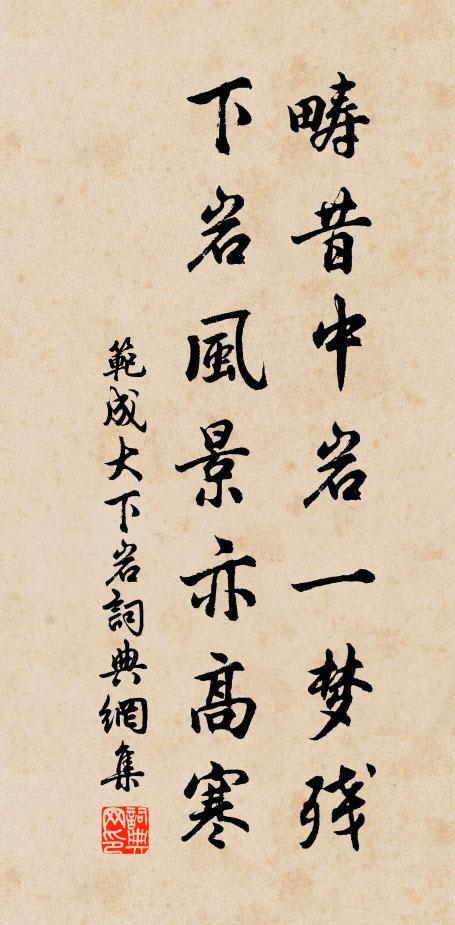 疇昔中岩一梦残
下岩風景亦高寒
範成大下岩詞典網集
詞典网印